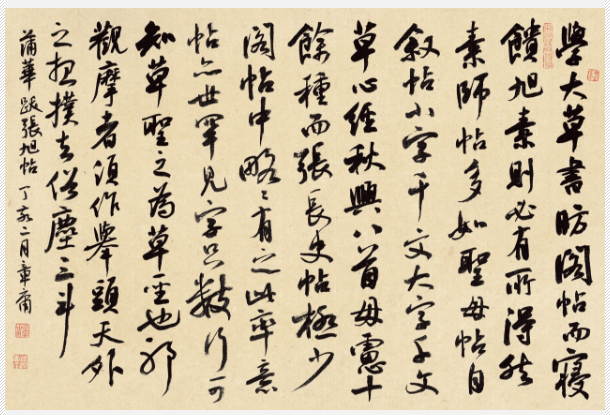 學大草書昉閣帖而寢
饋旭素則必有所得然
素師帖多如聖母帖自
敘帖小字千文大字千文
草心經秋興八首毋慮十
餘種而張長史帖極少
閣帖中略々有之此率意
帖亦世罕見字只數行可
知草聖之為草圣也
觀摩者須作舉頭天外
之想撲去俗塵三斗
蒲華跋張旭帖 丁亥二月章